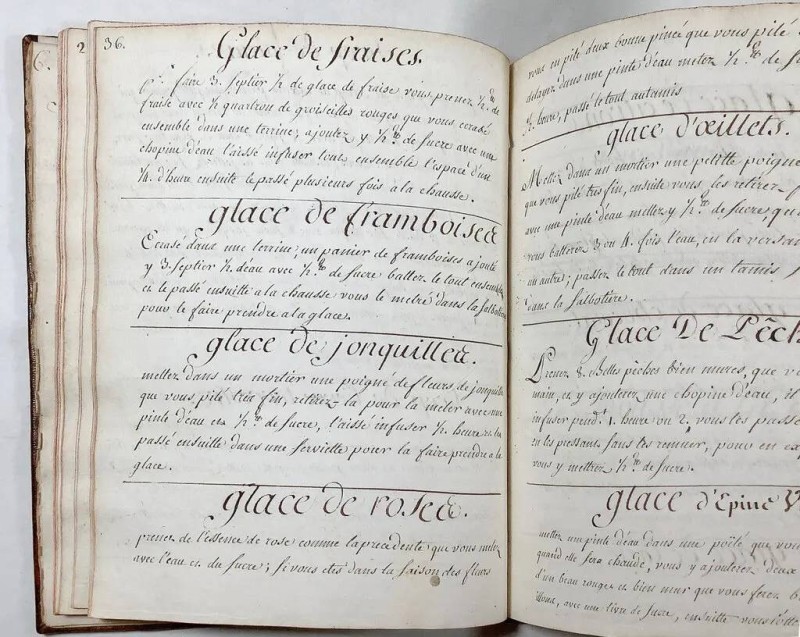 2
36.
Glace de fraises.
pr. faire 3. septier ½ de glace de fraise vous prenez ½ lb de
fraise avec ½ quartron de groiseilles rouges que vous ecrasé
ensemble dans une terrine, ajoutez y ½ lb de sucre avec une
chopine d'eau laissé infuser tout ensemble l'espace d'un
¼ d'heure ensuitte le passé plusieurs fois à la chausse.
glace de framboises
Ecrasé dans une terrine, un panier de framboises ajouté
y 3. septier ½ d'eau avec ½ lb de sucre battez le tout ensemble
et le passé ensuitte a la chausse vous le metré dans la salbotiere
pour le faire prendre a la glace.
glace de jonquilles.
mettez dans un mortier une poigné de fleurs de jonquille
que vous pilé très fin, retirez-la pour la meler avec une
pinte d'eau et ½ lb de sucre, l'aissé infuser ½ heure et la
passé ensuitte dans une serviette pour la faire prendre a la
glace.
glace de roses.
prenez de l'essence de rose comme la precedente que vous mettez
avec l'eau et du sucre; si vous etes dans la saison des fleurs
vous en pilé deux bonne pincé que vous pilé
delayez dans une pinte d'eau metez ½ lb de
½ heure, passé le tout au tamis
glace d'œillets.
Mettez dans un mortier une petitte poigné
que vous pilé très fin, ensuite vous les retirez
avec une pinte d'eau mettez y ½ lb de sucre, que
vous batterez 3. ou 4. fois l'eau, en la versant
un autre; passez le tout dans un tamis
dans la salbotière.
Glace De Pêch
Prenez 8. Belles pêches bien mures, que vo
main, et y ajouterez une chopine d'eau, il
infuser pendt. 1. heure ou 2. vous les passé
en les pressant sans les remuer, pour en exp
vous y mettrez ½ lb de sucre.
glace d'Épine V
mettez un pinte d'eau dans une poële que vous
quand elle sera chaude, vous y ajouterez deux
d'un beau rouge et bien meur que vous ferez
avec une livre de sucre, ensuitte vous l'ôtte